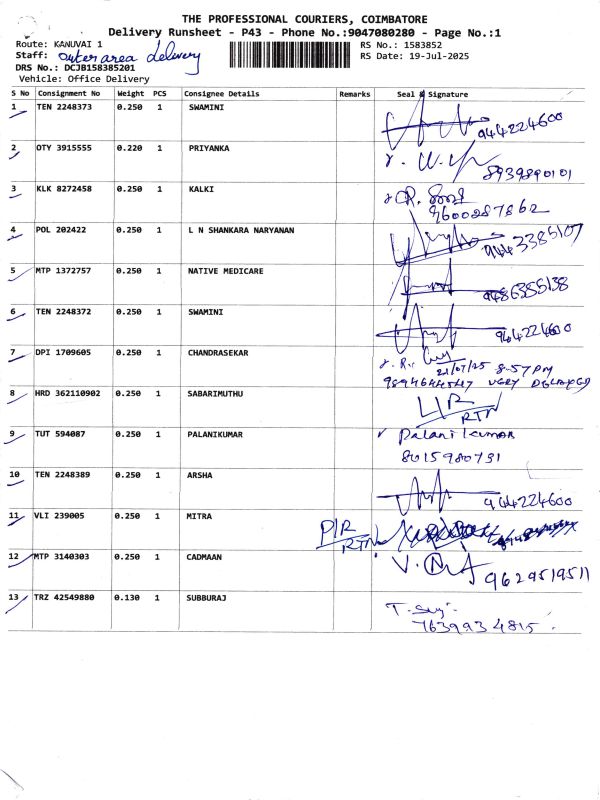 THE PROFESSIONAL COURIERS, COIMBATORE
Delivery Runsheet - P43 - Phone No.:9047080280 - Page No.:1
Route: KANUVAI 1 RS No.: 1583852
Staff: outer area delivery RS Date: 19-Jul-2025
DRS No.: DCJB158385201
Vehicle: Office Delivery
S No Consignment No Weight PCS Consignee Details Remarks Seal & Signature
1 TEN 2248373 0.250 1 SWAMINI
944224600
2 OTY 3915555 0.220 1 PRIYANKA
8939890101
3 KLK 8272458 0.250 1 KALKI
9600287862
4 POL 202422 0.250 1 L N SHANKARA NARYANAN
9443385107
5 MTP 1372757 0.250 1 NATIVE MEDICARE
9486355138
6 TEN 2248372 0.250 1 SWAMINI
964224600
7 DPI 1709605 0.250 1 CHANDRASEKAR
21/07/25 8.57 pm
VERY DELAYED
8 HRD 362110902 0.250 1 SABARIMUTHU
RTN
9 TUT 594087 0.250 1 PALANIKUMAR Palanikumar
8015980731
10 TEN 2248389 0.250 1 ARSHA
944224600
11 VLI 239005 0.250 1 MITRA P/R
RTN
12 MTP 3140303 0.250 1 CADMAAN
9629519511
13 TRZ 42549880 0.130 1 SUBBURAJ
7639934815